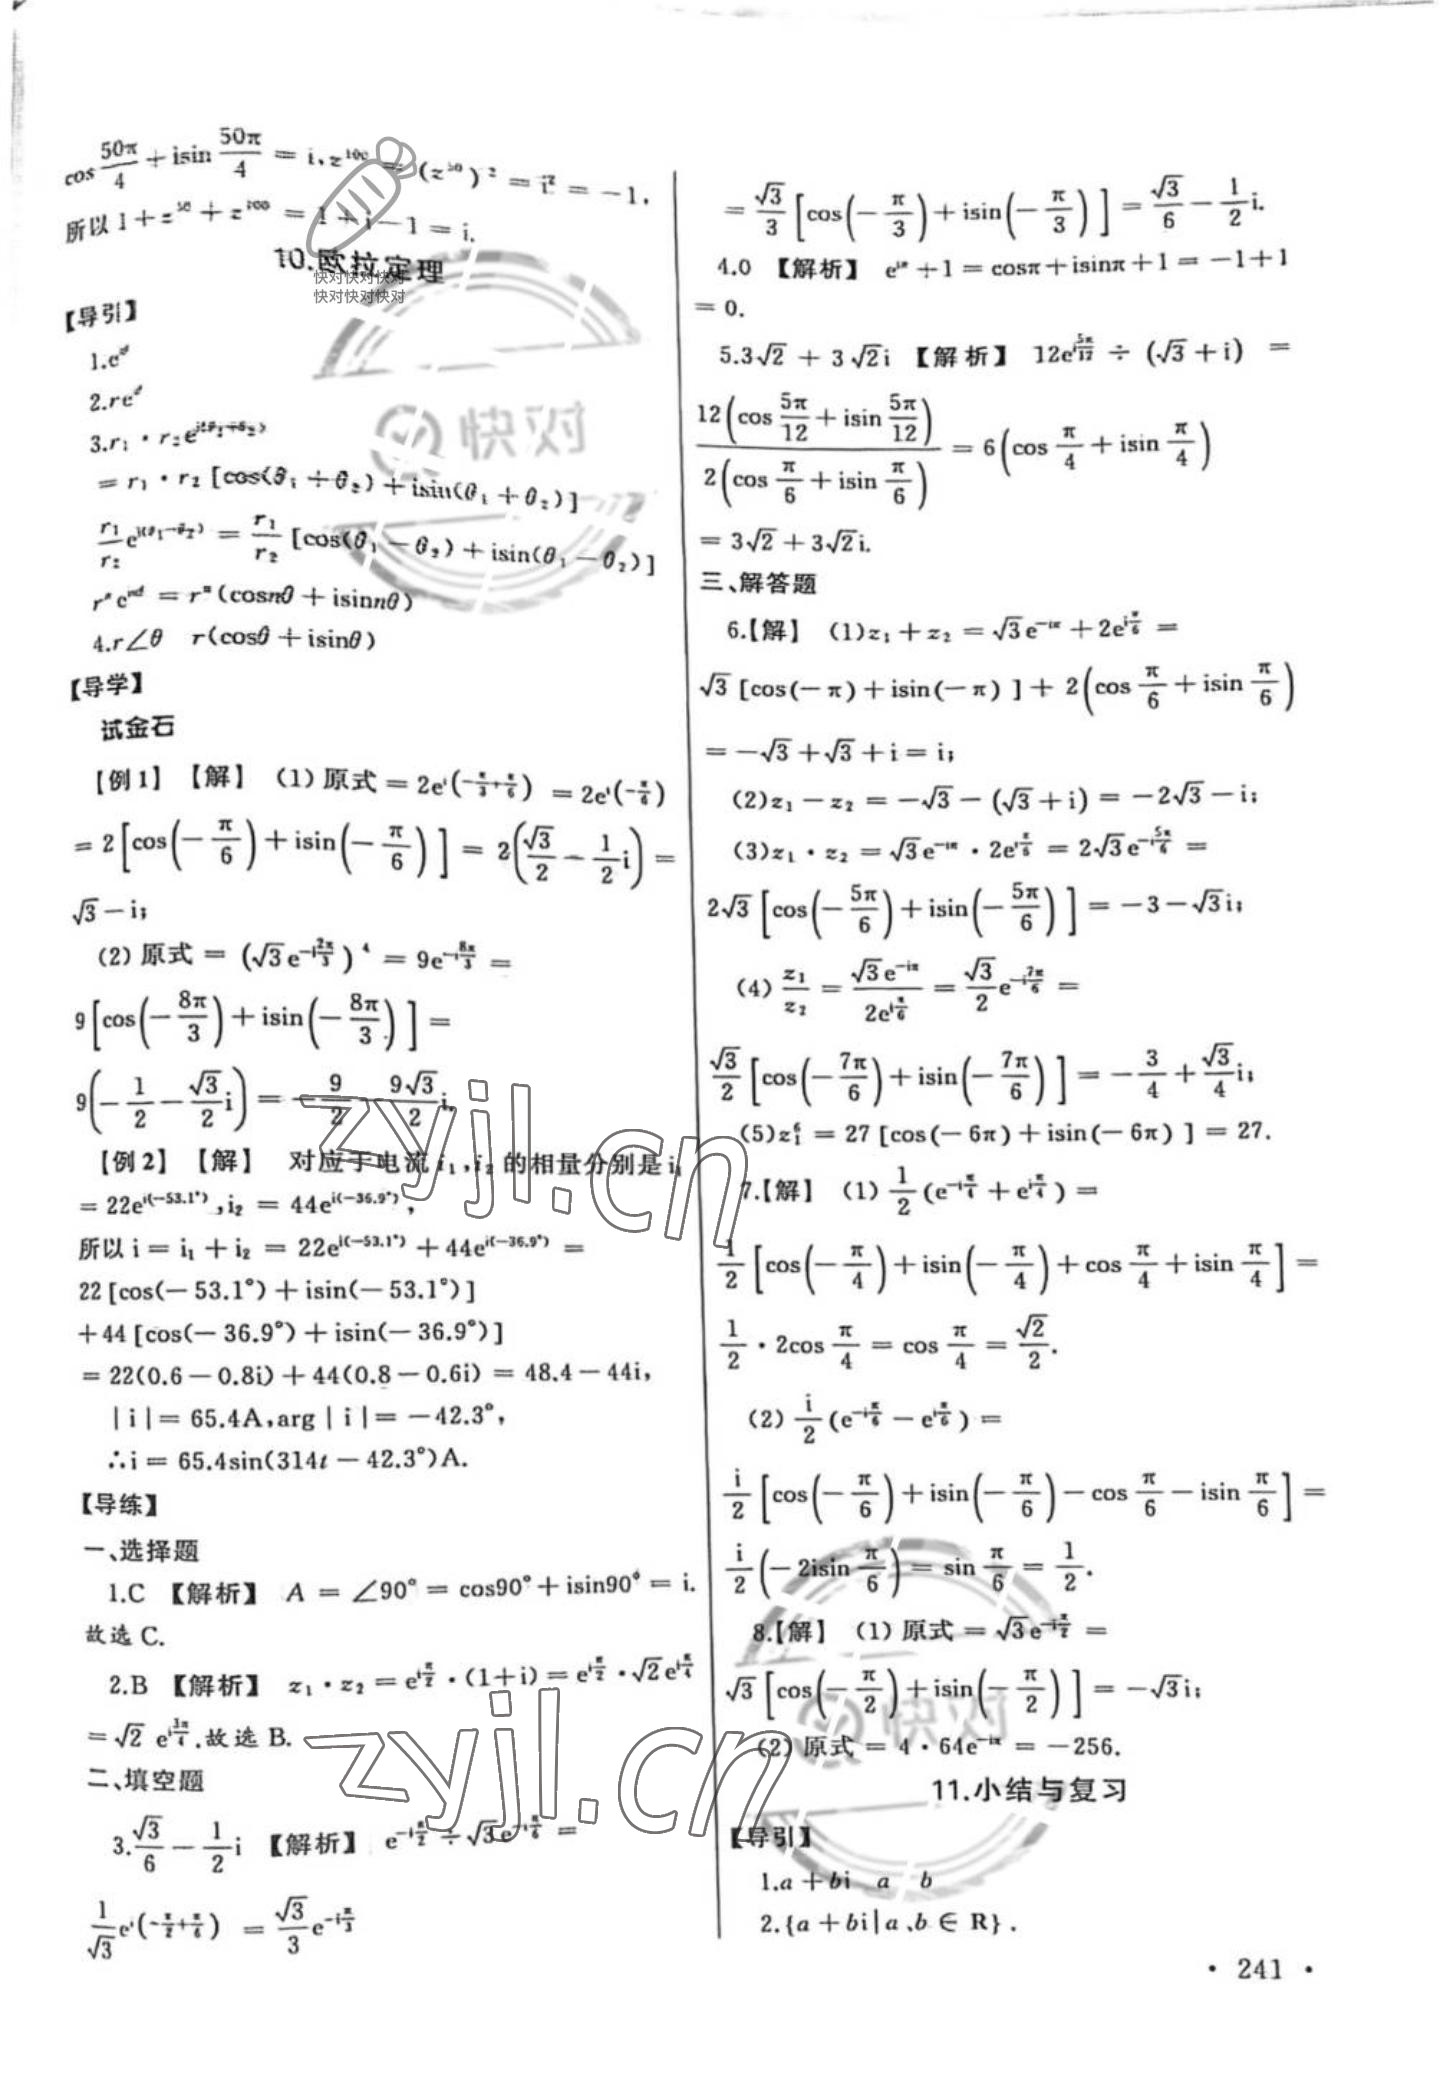 cos 50π/4 + isin 50π/4 = i, z^100 = (z^50)^2 = i^2 = -1,
所以 1 + z^50 + z^100 = 1 + i - 1 = i.
10.欧拉定理
快对快对快对
快对快对快对
【导引】
1.e^{iθ}
2.re^{iθ}
3.r₁ · r₂e^{i(θ₁+θ₂)}
= r₁ · r₂ [cos(θ₁ + θ₂) + isin(θ₁ + θ₂)]
r₁/r₂ e^{i(θ₁-θ₂)} = r₁/r₂ [cos(θ₁ - θ₂) + isin(θ₁ - θ₂)]
rⁿe^{inθ} = rⁿ(cosnθ + isinnθ)
4.r∠θ r(cosθ + isinθ)
【导学】
试金石
【例1】【解】 (1) 原式 = 2e^{i(-π/3+π/6)} = 2e^{i(-π/6)}
= 2[cos(-π/6) + isin(-π/6)] = 2(√3/2 - 1/2 i) =
√3 - i;
(2) 原式 = (√3e^{-i2π/3})^4 = 9e^{-i8π/3} =
9[cos(-8π/3) + isin(-8π/3)] =
9(-1/2 - √3/2 i) = -9/2 - 9√3/2 i.
【例2】【解】 对应于电流 i₁,i₂ 的相量分别是 i₁
= 22e^{i(-53.1°)},i₂ = 44e^{i(-36.9°)},
所以 i = i₁ + i₂ = 22e^{i(-53.1°)} + 44e^{i(-36.9°)} =
22 [cos(- 53.1°) + isin(- 53.1°)]
+ 44 [cos(- 36.9°) + isin(- 36.9°)]
= 22(0.6 - 0.8i) + 44(0.8 - 0.6i) = 48.4 - 44i,
| i | = 65.4A, arg | i | = -42.3°,
∴i = 65.4sin(314t - 42.3°)A.
【导练】
一、选择题
1.C 【解析】 A = ∠90° = cos90° + isin90° = i.
故选 C.
2.B 【解析】 z₁ · z₂ = e^{iπ/2} · (1+i) = e^{iπ/2} · √2e^{iπ/4}
= √2 e^{i3π/4}.故选 B.
二、填空题
3.√3/6 - 1/2 i 【解析】 e^{-iπ/2} ÷ √3e^{-iπ/6} =
1/√3 e^{i(-π/2+π/6)} = √3/3 e^{-iπ/3}
= √3/3 [cos(-π/3) + isin(-π/3)] = √3/6 - 1/2 i.
4.0 【解析】 e^{iπ} + 1 = cosπ + isinπ + 1 = -1 + 1
= 0.
5.3√2 + 3√2i 【解析】 12e^{i5π/12} ÷ (√3 + i) =
12(cos 5π/12 + isin 5π/12) / 2(cos π/6 + isin π/6) = 6(cos π/4 + isin π/4)
= 3√2 + 3√2i.
三、解答题
6.【解】 (1)z₁ + z₂ = √3e^{-iπ} + 2e^{iπ/6} =
√3 [cos(-π) + isin(-π)] + 2(cos π/6 + isin π/6)
= -√3 + √3 + i = i;
(2)z₁ - z₂ = -√3 - (√3 + i) = -2√3 - i;
(3)z₁ · z₂ = √3e^{-iπ} · 2e^{iπ/6} = 2√3e^{-i5π/6} =
2√3 [cos(-5π/6) + isin(-5π/6)] = -3 - √3i;
(4) z₁/z₂ = √3e^{-iπ}/2e^{iπ/6} = √3/2 e^{-i7π/6} =
√3/2 [cos(-7π/6) + isin(-7π/6)] = -3/4 + √3/4 i;
(5)z₁^6 = 27 [cos(- 6π) + isin(- 6π)] = 27.
7.【解】 (1) 1/2 (e^{-iπ/4} + e^{iπ/4}) =
1/2 [cos(-π/4) + isin(-π/4) + cos π/4 + isin π/4] =
1/2 · 2cos π/4 = cos π/4 = √2/2.
(2) i/2 (e^{-iπ/6} - e^{iπ/6}) =
i/2 [cos(-π/6) + isin(-π/6) - cos π/6 - isin π/6] =
i/2 (-2isin π/6) = sin π/6 = 1/2.
8.【解】 (1) 原式 = √3e^{-iπ/2} =
√3 [cos(-π/2) + isin(-π/2)] = -√3i;
(2) 原式 = 4 · 64e^{-iπ} = -256.
11.小结与复习
【导引】
1.a + bi a b
2.{a + bi|a、b ∈ R}.
· 241 ·
快对
zyjl.cn
zyjl.cn
快对